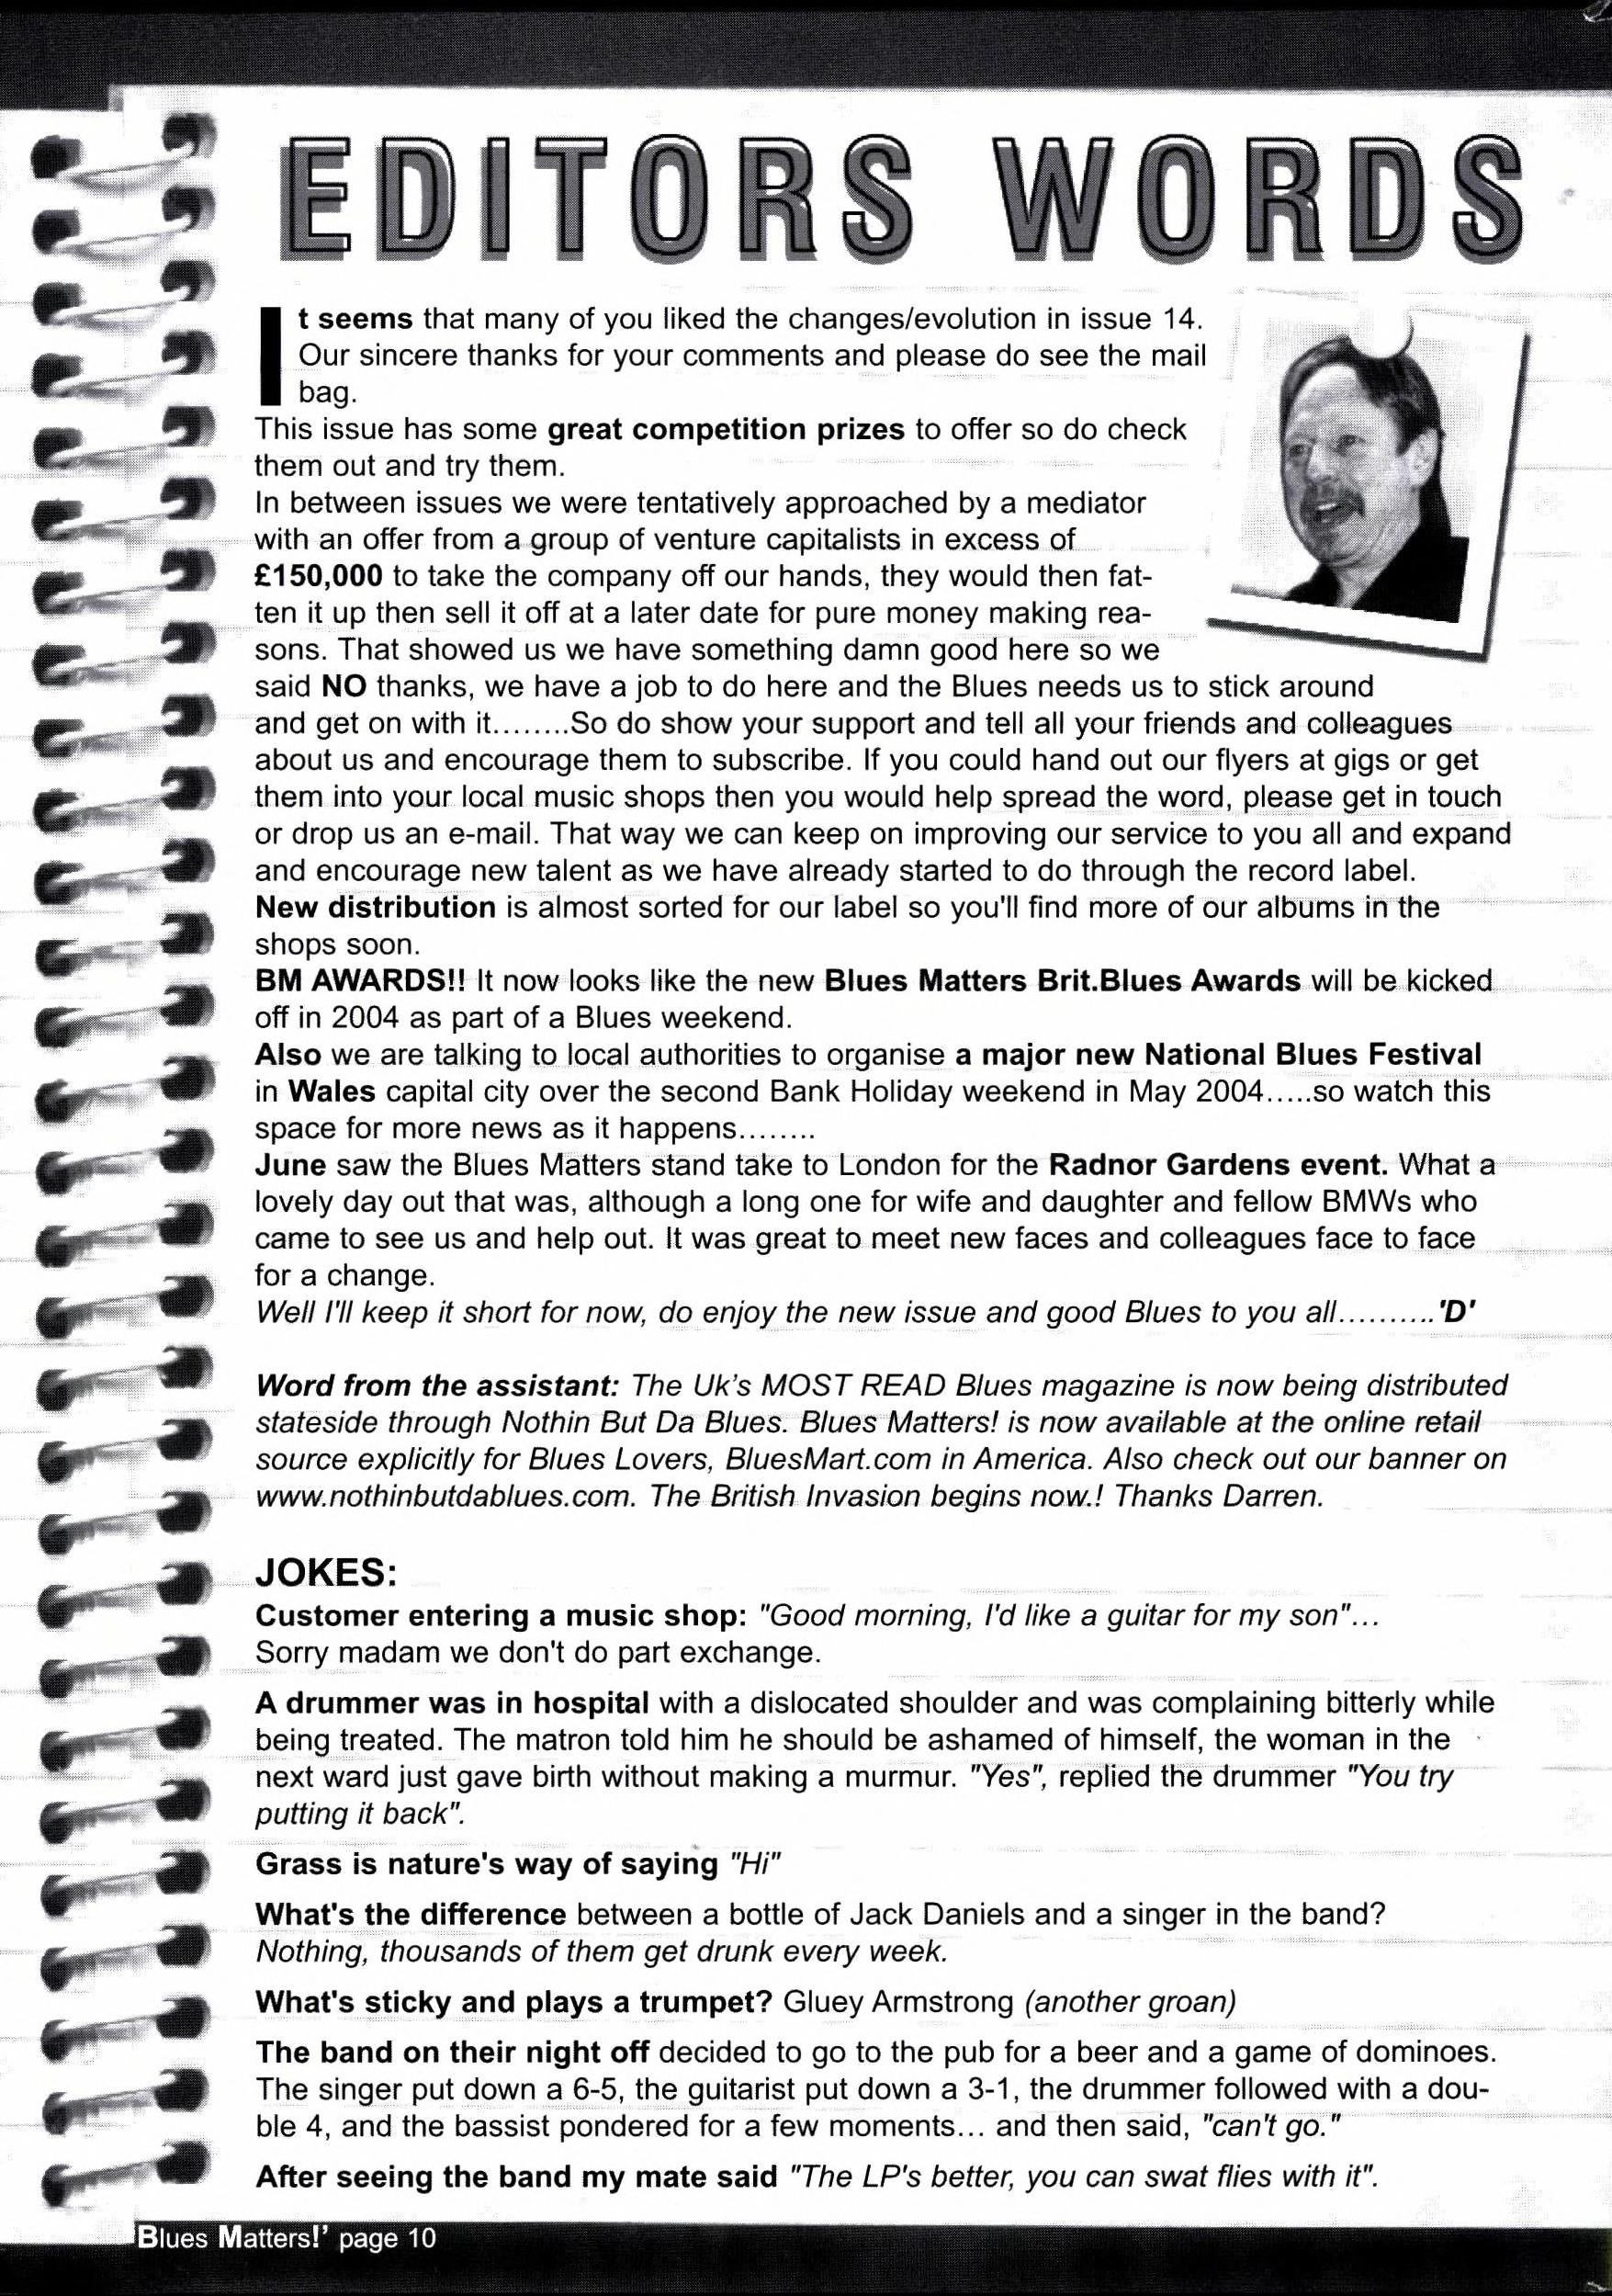 EDITORS WORDS
It seems that many of you liked the changes/evolution in issue 14.
Our sincere thanks for your comments and please do see the mail
bag.
This issue has some great competition prizes to offer so do check
them out and try them.
In between issues we were tentatively approached by a mediator
with an offer from a group of venture capitalists in excess of
£150,000 to take the company off our hands, they would then fat-
ten it up then sell it off at a later date for pure money making rea-
sons. That showed us we have something damn good here so we
said NO thanks, we have a job to do here and the Blues needs us to stick around
and get on with it........So do show your support and tell all your friends and colleagues
about us and encourage them to subscribe. If you could hand out our flyers at gigs or get
them into your local music shops then you would help spread the word, please get in touch
or drop us an e-mail. That way we can keep on improving our service to you all and expand
and encourage new talent as we have already started to do through the record label.
New distribution is almost sorted for our label so you'll find more of our albums in the
shops soon.
BM AWARDS!! It now looks like the new Blues Matters Brit.Blues Awards will be kicked
off in 2004 as part of a Blues weekend.
Also we are talking to local authorities to organise a major new National Blues Festival
in Wales capital city over the second Bank Holiday weekend in May 2004.....so watch this
space for more news as it happens........
June saw the Blues Matters stand take to London for the Radnor Gardens event. What a
lovely day out that was, although a long one for wife and daughter and fellow BMWs who
came to see us and help out. It was great to meet new faces and colleagues face to face
for a change.
Well I'll keep it short for now, do enjoy the new issue and good Blues to you all..........'D'
Word from the assistant: The Uk's MOST READ Blues magazine is now being distributed
stateside through Nothin But Da Blues. Blues Matters! is now available at the online retail
source explicitly for Blues Lovers, BluesMart.com in America. Also check out our banner on
www.nothinbutdablues.com. The British Invasion begins now.! Thanks Darren.
JOKES:
Customer entering a music shop: "Good morning, I'd like a guitar for my son"...
Sorry madam we don't do part exchange.
A drummer was in hospital with a dislocated shoulder and was complaining bitterly while
being treated. The matron told him he should be ashamed of himself, the woman in the
next ward just gave birth without making a murmur. "Yes", replied the drummer "You try
putting it back".
Grass is nature's way of saying "Hi"
What's the difference between a bottle of Jack Daniels and a singer in the band?
Nothing, thousands of them get drunk every week.
What's sticky and plays a trumpet? Gluey Armstrong (another groan)
The band on their night off decided to go to the pub for a beer and a game of dominoes.
The singer put down a 6-5, the guitarist put down a 3-1, the drummer followed with a dou-
ble 4, and the bassist pondered for a few moments... and then said, "can't go."
After seeing the band my mate said "The LP's better, you can swat flies with it".
Blues Matters!' page 10